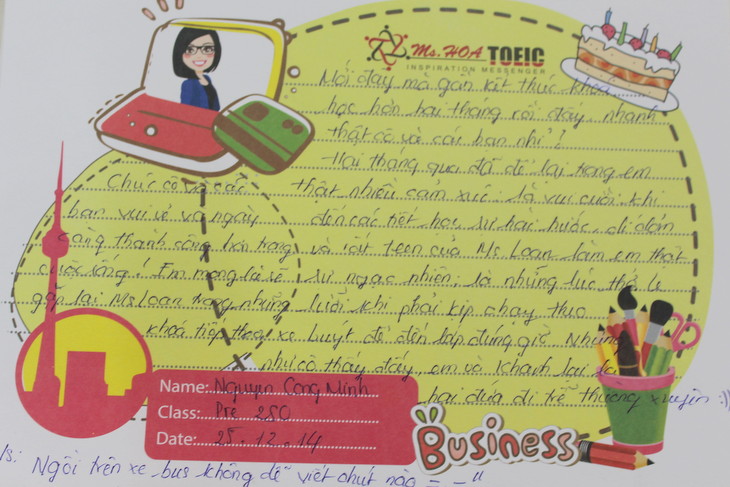 Ms. HOA TOEIC
INSPIRATION MESSENGER
Mới đây mà gần kết thúc khoá
học hơn hai tháng rồi đấy, nhanh
thật cô và các bạn nhỉ?
Hai tháng qua đã để lại trong em
thật nhiều cảm xúc. Là vui cười khi
đến các tiết học, sự hài hước, dí dỏm
và rất teen của Ms Loan làm em thật
sự ngạc nhiên; là những lúc thở
khi phải kịp chạy theo
xe buýt để đến lớp đúng giờ. Nhưng
như cô thấy đấy, em và Khanh lại là
hai đứa đi trễ thường xuyên :))
Chúc cô và các
bạn vui vẻ và ngày
càng thành công hơn trong
cuộc sống! Em mong là sẽ
gặp lại Ms Loan trong những
khoá tiếp theo
Name: Nguyen Cong Minh
Class: Pre 250
Date: 25.12.14
BUSINESS
/s: Ngồi trên xe bus không dễ viết chút nào = _ ="